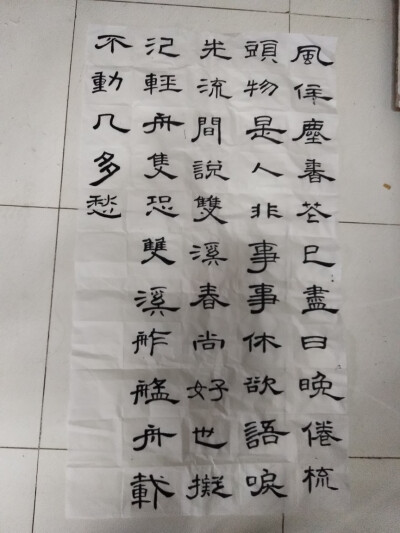 風住塵香花已盡日晚倦梳
頭物是人非事事休欲語淚
先流間說雙溪春尚好也擬
汜輕舟隻恐雙溪舴艋舟載
不動几多愁